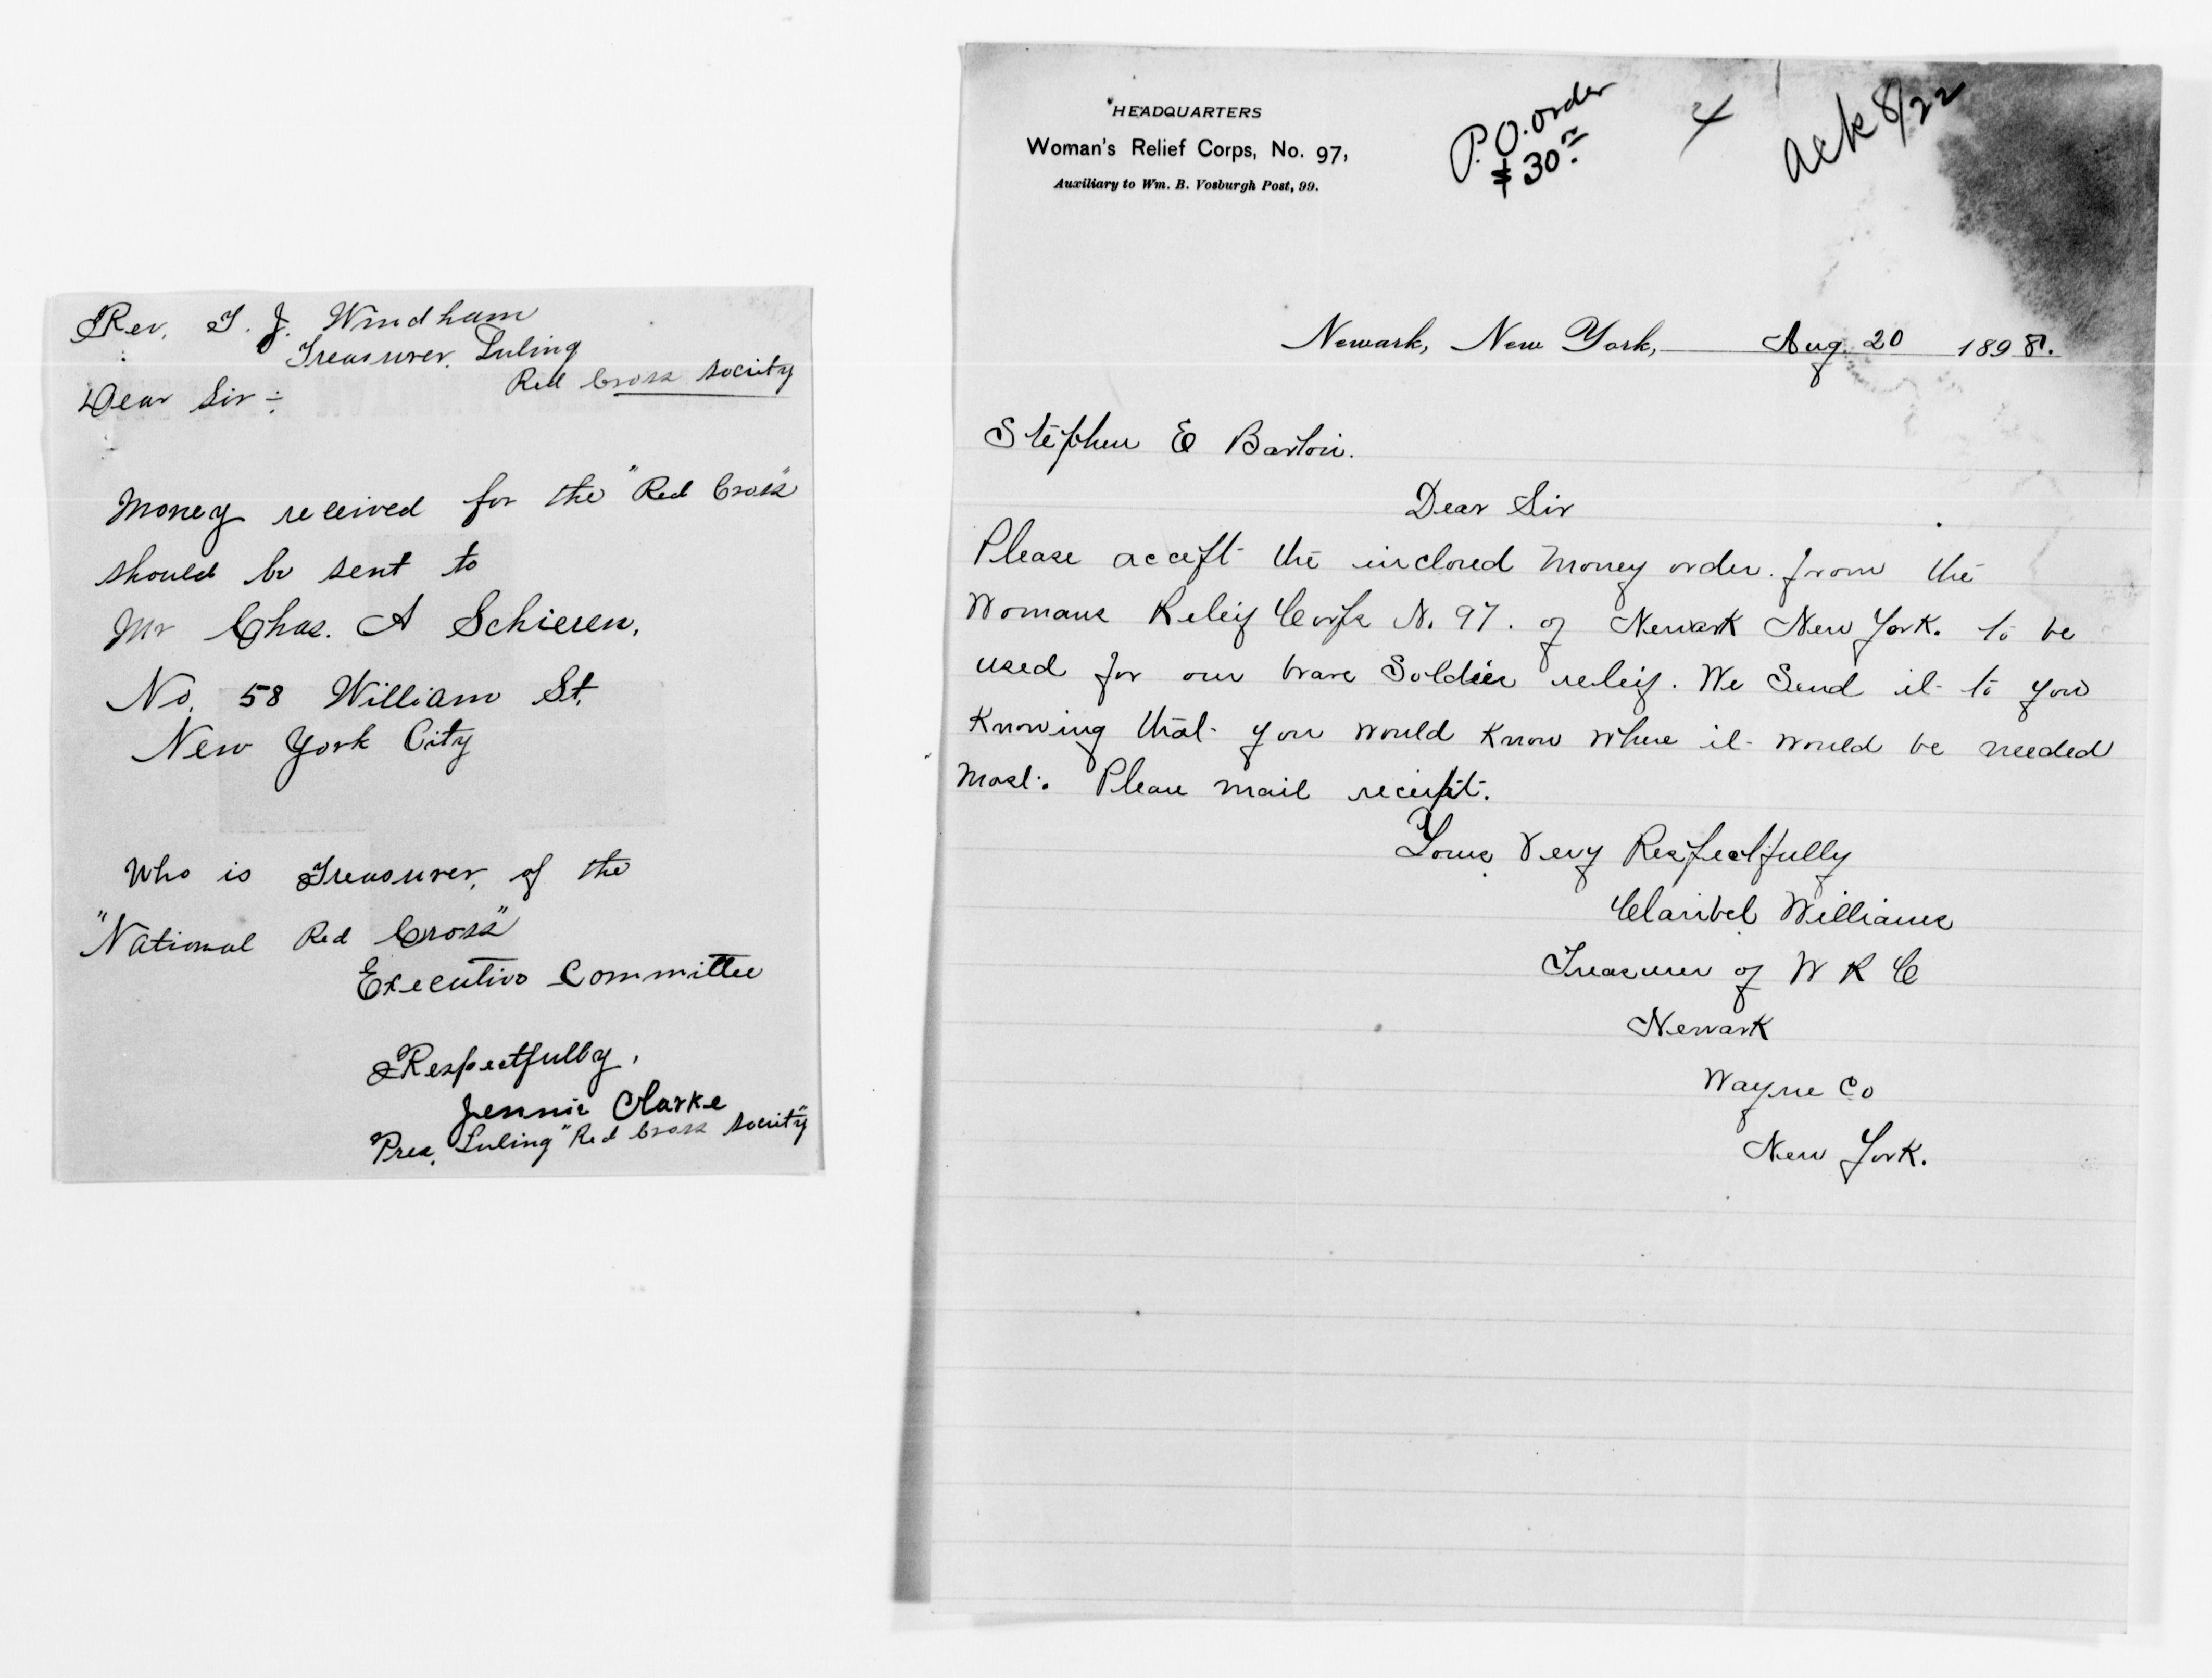 Rev. T. J. Windham
Treasurer, Luling
Red Cross Society
Dear Sir :-
Money received for the "Red Cross"
should be sent to
Mr Chas. A Schieren,
No. 58 William St.
New York City
Who is Treasurer, of the
"National Red Cross"
Executive Committee
Respectfully,
Jennie Clarke
Pres. Luling "Red Cross Society"
HEADQUARTERS
Woman's Relief Corps, No. 97,
Auxiliary to Wm. B. Vosburgh Post, 99.
P.O. order
$30.00
4
Ack 8/22
Newark, New York, Aug. 20 1898.
Stephen E Barton.
Dear Sir
Please accept the inclosed money order. from the
Womans Releif Corps N. 97. of Newark New York. to be
used for our brave Soldier releif. We Send it to you
Knowing that you would Know where it would be needed
most. Please mail receipt.
Yours Very Respectfully
Claribel Williams
Treasurer of W R C
Newark
Wayne Co
New York.